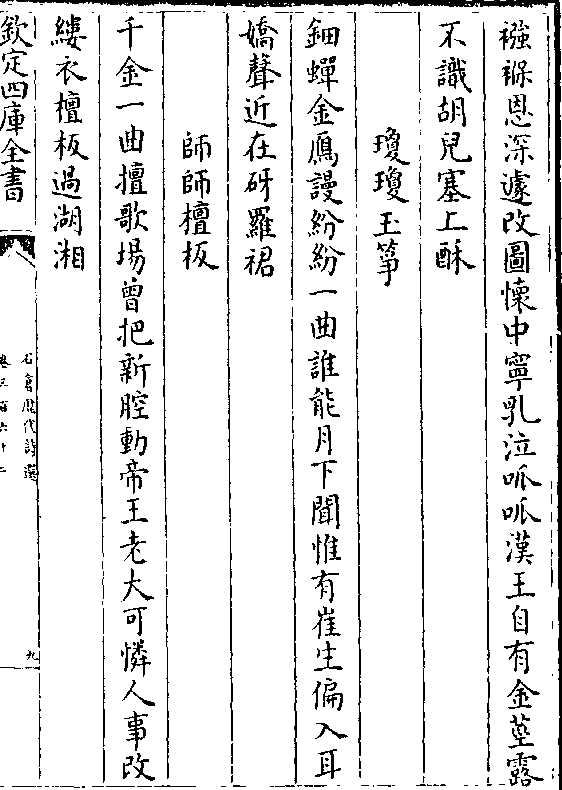 襁褓恩深遽改圖懐中寧乳泣呱呱漢王自有金莖露
不識胡兒塞上酥
瓊瓊玉筝
鈿蟬金鴈謾紛紛一曲誰能月下聞惟有崔生偏入耳
嬌聲近在砑羅裙
師師檀板
千金一曲擅歌場曾把新腔動帝王老大可憐人事改
縷衣檀板過湖湘
欽定四庫全書
石倉歴代詩選
九